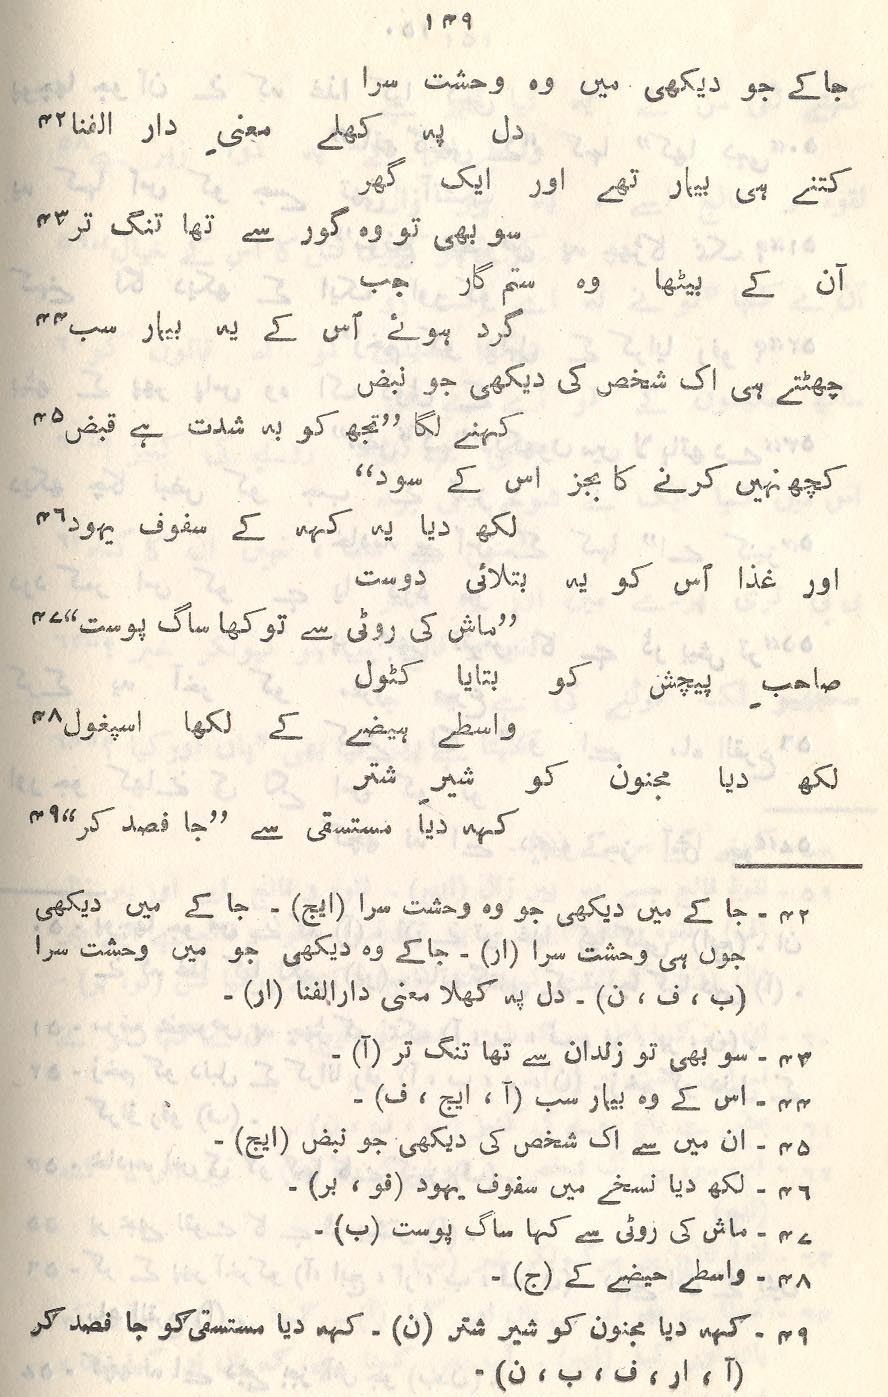 ۱۴۹
جا کے جو دیکھی میں وہ وحشت سرا
دل پہ کھلے معنیِ دار الفنا۴۲
کتنے ہی بیمار تھے اور ایک گھر
سو بھی تو وہ گور سے تھا تنگ تر۴۳
آن کے بیٹھا وہ ستم گار جب
گرد ہوئے اُس کے یہ بیمار سب۴۴
چھٹتے ہی اک شخص کی دیکھی جو نبض
کہنے لگا ”تجھ کو بہ شدت ہے قبض۴۵
کچھ نہیں کرنے کا بجز اس کے سود“
لکھ دیا یہ کہہ کے سفوف یہود۴۶
اور غذا اُس کو یہ بتلائی دوست
”ماش کی روٹی سے تو کھا ساگ پوست“۴۷
صاحبِ پیچش کو بتایا کٹول
واسطے ہیضے کے لکھا اسپغول۴۸
لکھ دیا مجنون کو شیرِ شتر
کہہ دیا مستسقی سے ”جا فصد کر“۴۹
۴۲ - جا کے میں دیکھی جو وہ وحشت سرا (ایچ) - جا کے میں دیکھی
جوں ہی وحشت سرا (ار) - جاکے وہ دیکھی جو میں وحشت سرا
(ب ، ف ، ن) - دل پہ کھلا معنی دارالفنا (ار) -
۴۳ - سو بھی تو زندان سے تھا تنگ تر (آ) -
۴۴ - اس کے وہ بیمار سب (آ ، ایچ ، ف) -
۴۵ - ان میں سے اک شخص کی دیکھی جو نبض (ایچ) -
۴۶ - لکھ دیا نسخے میں سفوف یہود (فو ، بر) -
۴۷ - ماش کی روٹی سے کہا ساگ پوست (ب) -
۴۸ - واسطے حیضے کے (ج) -
۴۹ - کہہ دیا مجنون کو شیر شتر (ن) - کہہ دیا مستسقی کو جا فصد کر
(آ ، ار ، ف ، ب ، ن) -